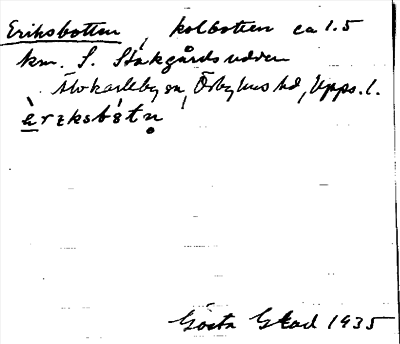 Eriksbotten, kolbotten ca 1.5
km. S. Stakgårdsudden
Älvkarleby sn, Örbyhus hd, Upps. l.
èrɪksbótn̥
Gösta Glad 1935